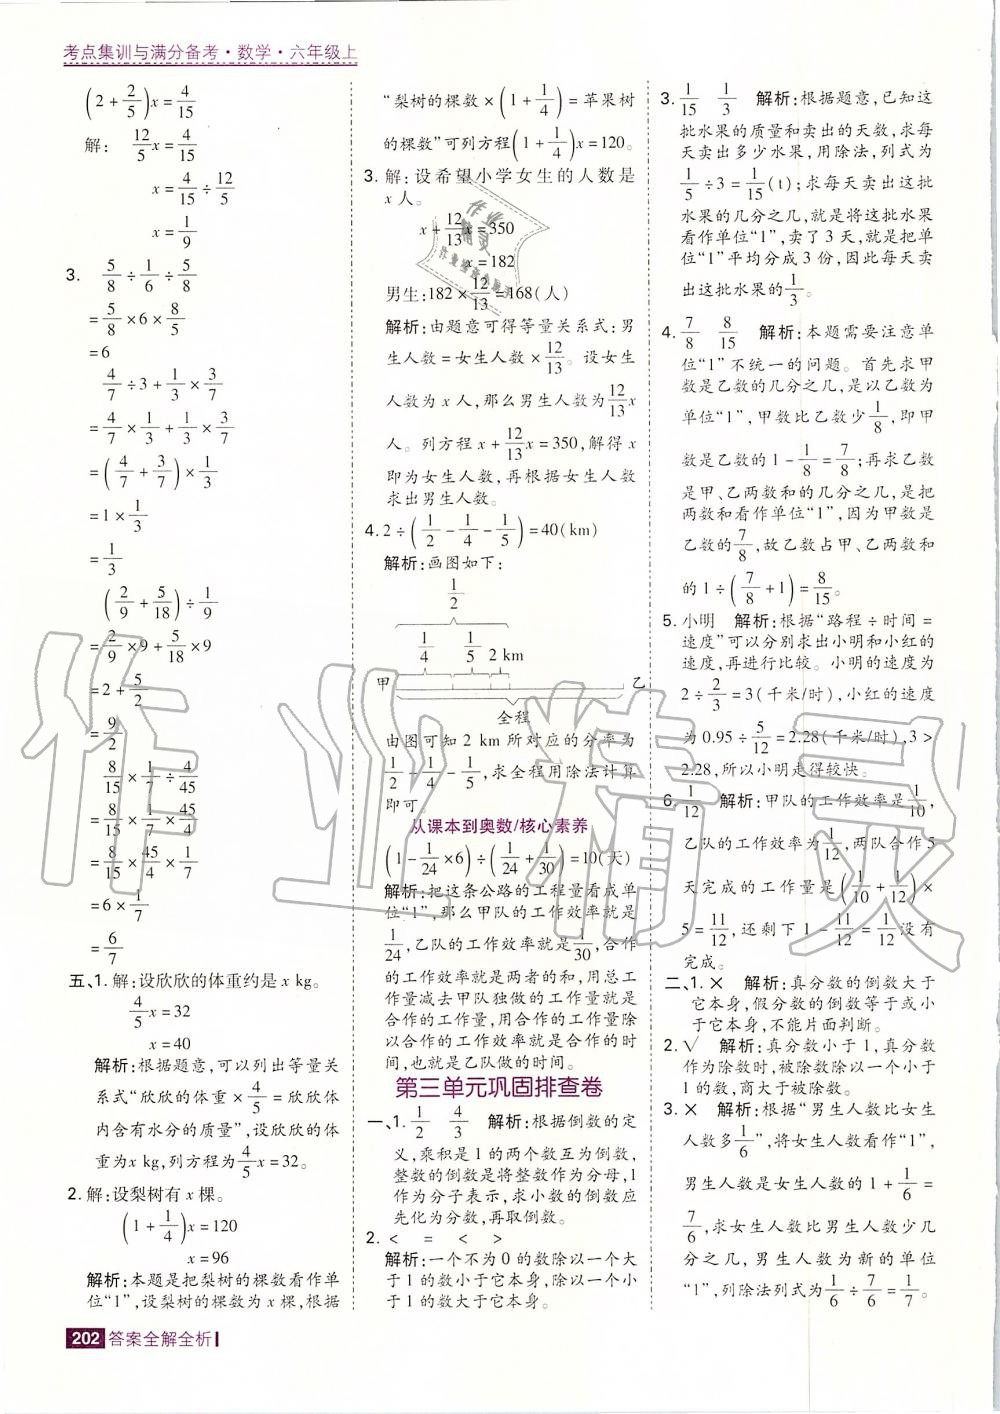 考点集训与满分备考·数学·六年级上
(2+2/5)x=4/15
解: 12/5x=4/15
x=4/15÷12/5
x=1/9
3. 5/8÷1/6÷5/8
=5/8×6×8/5
=6
4/7÷3+1/3×3/7
=4/7×1/3+1/3×3/7
=(4/7+3/7)×1/3
=1×1/3
=1/3
(2/9+5/18)÷1/9
=2/9×9+5/18×9
=2+5/2
=9/2
8/15×1/7÷4/45
=8/15×1/7×45/4
=8/15×45/4×1/7
=6×1/7
=6/7
五、1.解:设欣欣的体重约是x kg。
4/5x=32
x=40
解析:根据题意,可以列出等量关
系式“欣欣的体重×4/5=欣欣体
内含有水分的质量”,设欣欣的体
重为x kg,列方程为4/5x=32。
2.解:设梨树有x棵。
(1+1/4)x=120
x=96
解析:本题是把梨树的棵数看作单
位“1”,设梨树的棵数为x棵,根据
“梨树的棵数×(1+1/4)=苹果树
的棵数”可列方程(1+1/4)x=120。
3.解:设希望小学女生的人数是
x人。
x+12/13x=350
x=182
男生:182×12/13=168(人)
解析:由题意可得等量关系式:男
生人数=女生人数×12/13。设女生
人数为x人,那么男生人数为12/13x
人。列方程x+12/13x=350,解得x
即为女生人数,再根据女生人数
求出男生人数。
4.2÷(1/2-1/4-1/5)=40(km)
解析:画图如下:
1/2
1/4 1/5 2 km
甲 乙
全程
由图可知2 km所对应的分率为
1/2-1/4-1/5,求全程用除法计算
即可。
从课本到奥数/核心素养
(1-1/24×6)÷(1/24+1/30)=10(天)
解析:把这条公路的工程量看成单
位“1”,那么甲队的工作效率就是
1/24,乙队的工作效率就是1/30,合作
的工作效率就是两者的和,用总工
作量减去甲队独做的工作量就是
合作的工作量,用合作的工作量除
以合作的工作效率就是合作的时
间,也就是乙队做的时间。
第三单元巩固排查卷
一、1.1/2 4/3 解析:根据倒数的定
义,乘积是1的两个数互为倒数,
整数的倒数是将整数作为分母,1
作为分子表示,求小数的倒数应
先化为分数,再取倒数。
2.< = < >
解析:一个不为0的数除以一个大
于1的数小于它本身,除以一个小
于1的数大于它本身。
3.1/15 1/3 解析:根据题意,已知这
批水果的质量和卖出的天数,求每
天卖出多少水果,用除法,列式为
1/5÷3=1/15(t);求每天卖出这批
水果的几分之几,就是将这批水果
看作单位“1”,卖了3天,就是把单
位“1”平均分成3份,因此每天卖
出这批水果的1/3。
4.7/8 8/15 解析:本题需要注意单
位“1”不统一的问题。首先求甲
数是乙数的几分之几,是以乙数为
单位“1”,甲数比乙数少1/8,即甲
数是乙数的1-1/8=7/8;再求乙数
是甲、乙两数和的几分之几,是把
两数和看作单位“1”,因为甲数是
乙数的7/8,故乙数占甲、乙两数和
的1÷(7/8+1)=8/15。
5.小明 解析:根据“路程÷时间=
速度”可以分别求出小明和小红的
速度,再进行比较。小明的速度为
2÷2/3=3(千米/时),小红的速度
为0.95÷5/12=2.28(千米/时),3>
2.28,所以小明走得较快。
6.1/12 解析:甲队的工作效率是1/10,
乙队的工作效率为1/12,两队合作5
天完成的工作量是(1/10+1/12)×
5=11/12,还剩下1-11/12=1/12没有
完成。
二、1.× 解析:真分数的倒数大于
它本身,假分数的倒数等于或小
于它本身,不能片面判断。
2.√ 解析:真分数小于1,真分数
作为除数时,被除数除以一个小于
1的数,商大于被除数。
3.× 解析:根据“男生人数比女生
人数多1/6”,将女生人数看作“1”,
男生人数是女生人数的1+1/6=
7/6,求女生人数比男生人数少几
分之几,男生人数为新的单位
“1”,列除法列式为1/6÷7/6=1/7。
202 答案全解全析
作业精灵